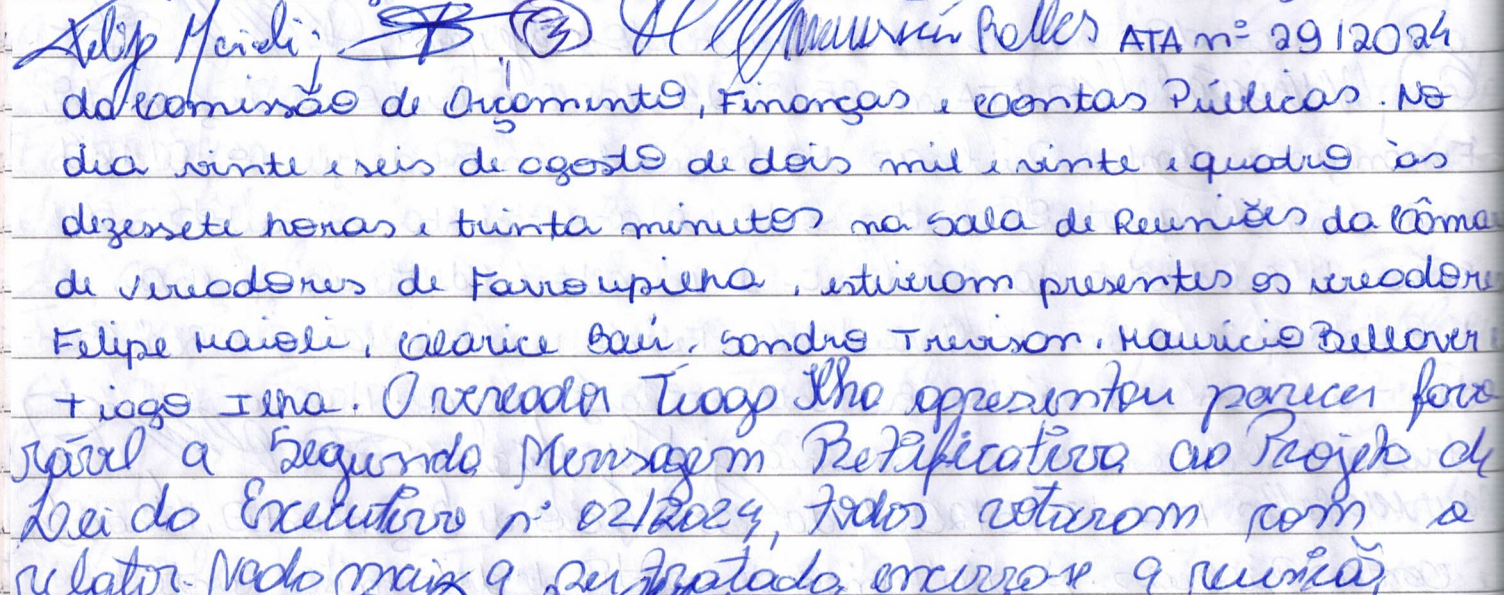 Felip Maioli; Mauricio Belles ATA nº 29/2024
da Comissão de Orçamento, Finanças e Contas Públicas. No
dia vinte e seis de agosto de dois mil e vinte e quatro às
dezessete horas e trinta minutos na Sala de Reuniões da Câma
de Vereadores de Farroupilha, estiveram presentes os vereadore
Felipe Maioli, Clarice Baú, Sandro Trevisan, Mauricio Bellaver
Tiago Ilha. O vereador Tiago Ilha apresentou parecer favo
rável a Segunda Mensagem Retificativa ao Projeto de
Lei do Executivo nº 02/2024, todos votaram com o
relator. Nada mais a ser tratada, encerro-se a reunião,